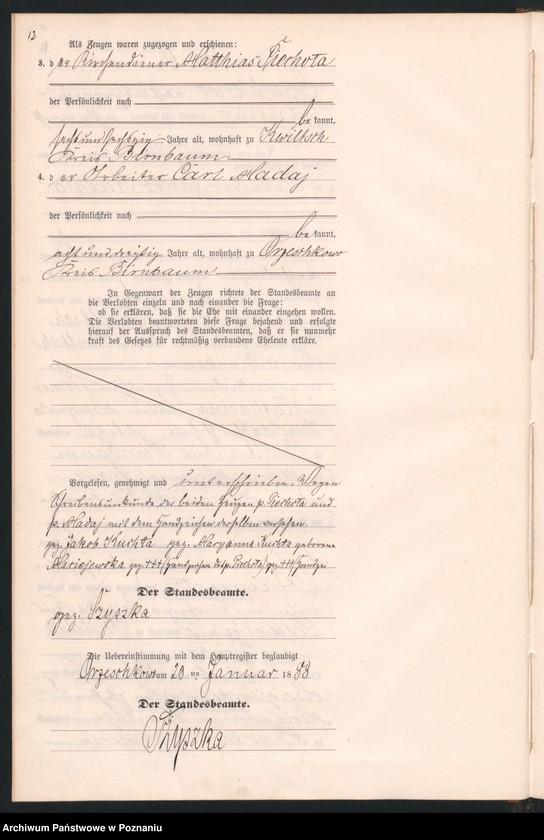 12
Als Zeugen waren zugezogen und erschienen:
3. der Kirchendiener Matthias Piechota
der Persönlichkeit nach
bekannt,
sechsundsechszig Jahre alt, wohnhaft zu Kwiltsch
Kreis Birnbaum
4. der Arbeiter Carl Madaj
der Persönlichkeit nach
bekannt,
achtunddreißig Jahre alt, wohnhaft zu Orzeschkowo
Kreis Birnbaum
In Gegenwart der Zeugen richtete der Standesbeamte an
die Verlobten einzeln und nach einander die Frage:
ob sie erklären, daß sie die Ehe mit einander eingehen wollen.
Die Verlobten beantworteten diese Frage bejahend und erfolgte
hierauf der Ausspruch des Standesbeamten, daß er sie nunmehr
kraft des Gesetzes für rechtmäßig verbundene Eheleute erkläre.
Vorgelesen, genehmigt und unterschrieben. Wegen
Schreibensunkunde der beiden Zeugen p. Piechota und
p. Madaj mit dem Handzeichen derselben versehen.
gez. Jakob Kuchta gez. Maryanna Kuchta geborene
Maciejewska gez. +++ Handzeichen des p. Piechota) gez. +++
Der Standesbeamte.
gez. Szyszka
Die Uebereinstimmung mit dem Hauptregister beglaubigt
Orzeschkowo am 28 ten Januar 1888
Der Standesbeamte.
Szyszka
Archiwum Państwowe w Poznaniu